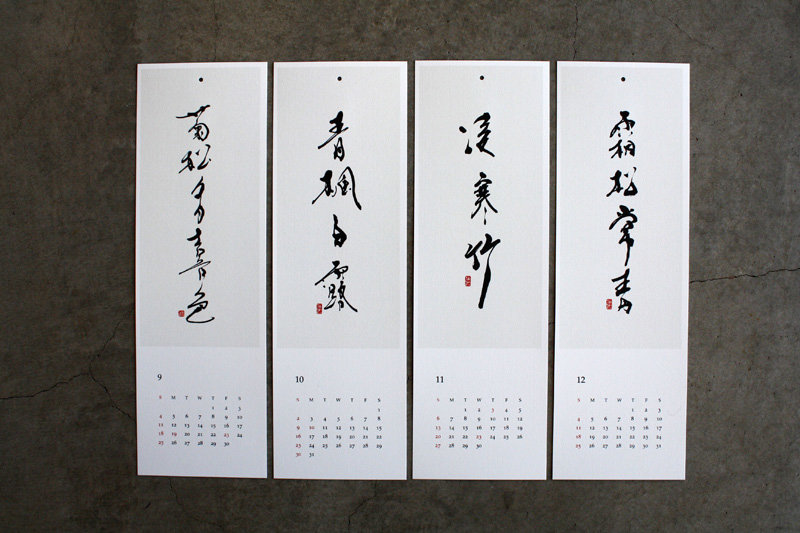 菊松多喜色
9
S M T W T F S
1 2 3
4 5 6 7 8 9 10
11 12 13 14 15 16 17
18 19 20 21 22 23 24
25 26 27 28 29 30
青楓白露
10
S M T W T F S
1
2 3 4 5 6 7 8
9 10 11 12 13 14 15
16 17 18 19 20 21 22
23 24 25 26 27 28 29
30 31
凌寒竹
11
S M T W T F S
1 2 3 4 5
6 7 8 9 10 11 12
13 14 15 16 17 18 19
20 21 22 23 24 25 26
27 28 29 30
霜松常青
12
S M T W T F S
1 2 3
4 5 6 7 8 9 10
11 12 13 14 15 16 17
18 19 20 21 22 23 24
25 26 27 28 29 30 31